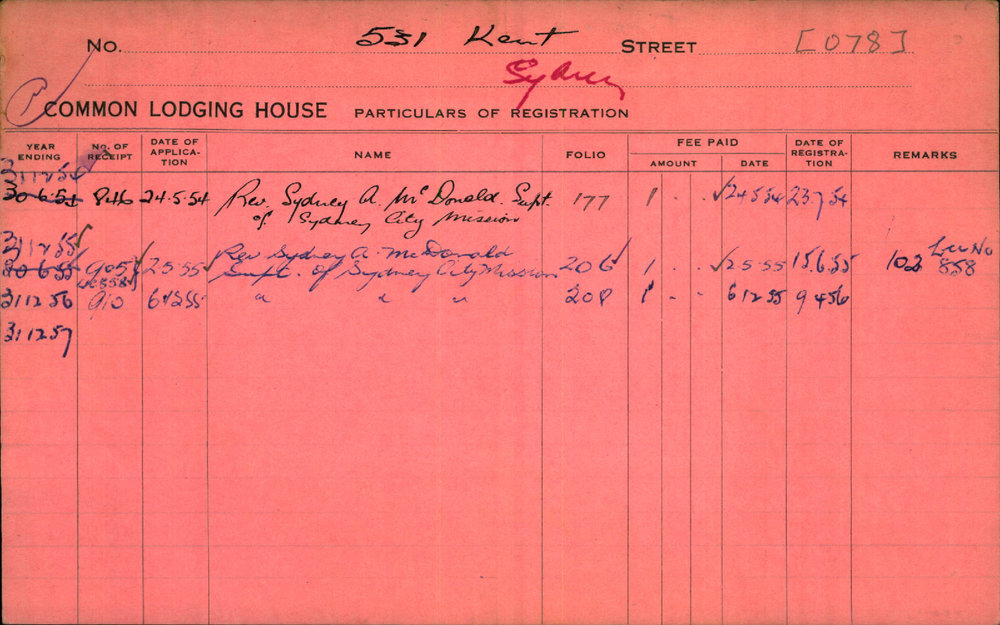 No. 531 Kent STREET [078]
Sydney
COMMON LODGING HOUSE PARTICULARS OF REGISTRATION
YEAR ENDING | NO. OF RECEIPT | DATE OF APPLICA-TION | NAME | FOLIO | FEE PAID | AMOUNT | DATE | DATE OF REGISTRA-TION | REMARKS
31 12 54
30·6·54 846 24·5·54 Rev. Sydney A. McDonald. Supt. 177 1 . . 24 5 54 23 7 54
of Sydney City Mission
31 12 55 Rev Sydney A. McDonald Lic No
30 6 55 905 2 5 55 Supt. of Sydney City Mission 206 1 . . 2 5 55 15 6 55 102 858
31 12 56 910 6 12 55 " " " 208 1 . . 6 12 55 9 4 56
31 12 57